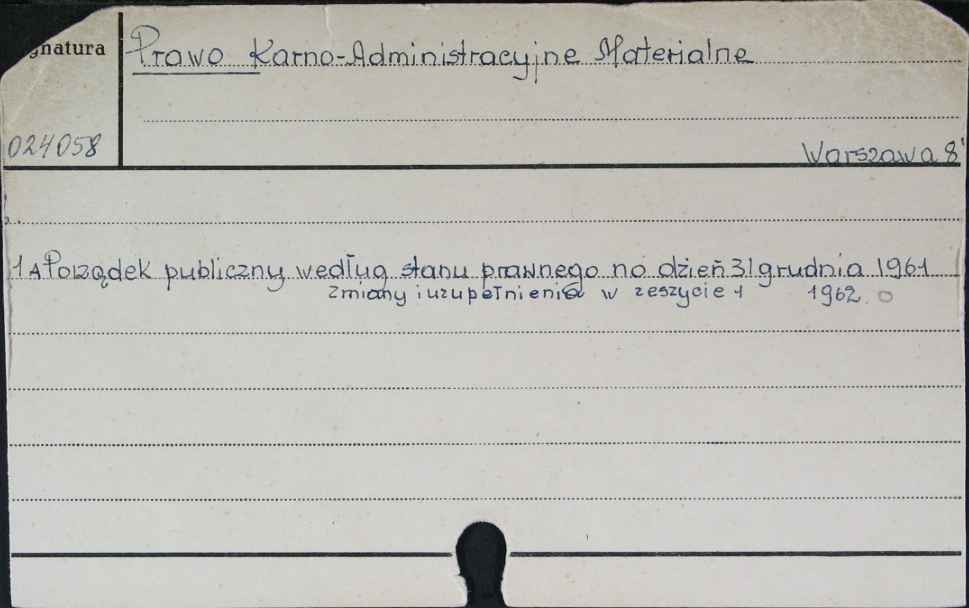 gnatura
Prawo Karno-Administracyjne Materialne
024058
Warszawa 8'
1 A Porządek publiczny według stanu prawnego na dzień 31 grudnia 1961
Zmiany i uzupełnienia w zeszycie 1 1962